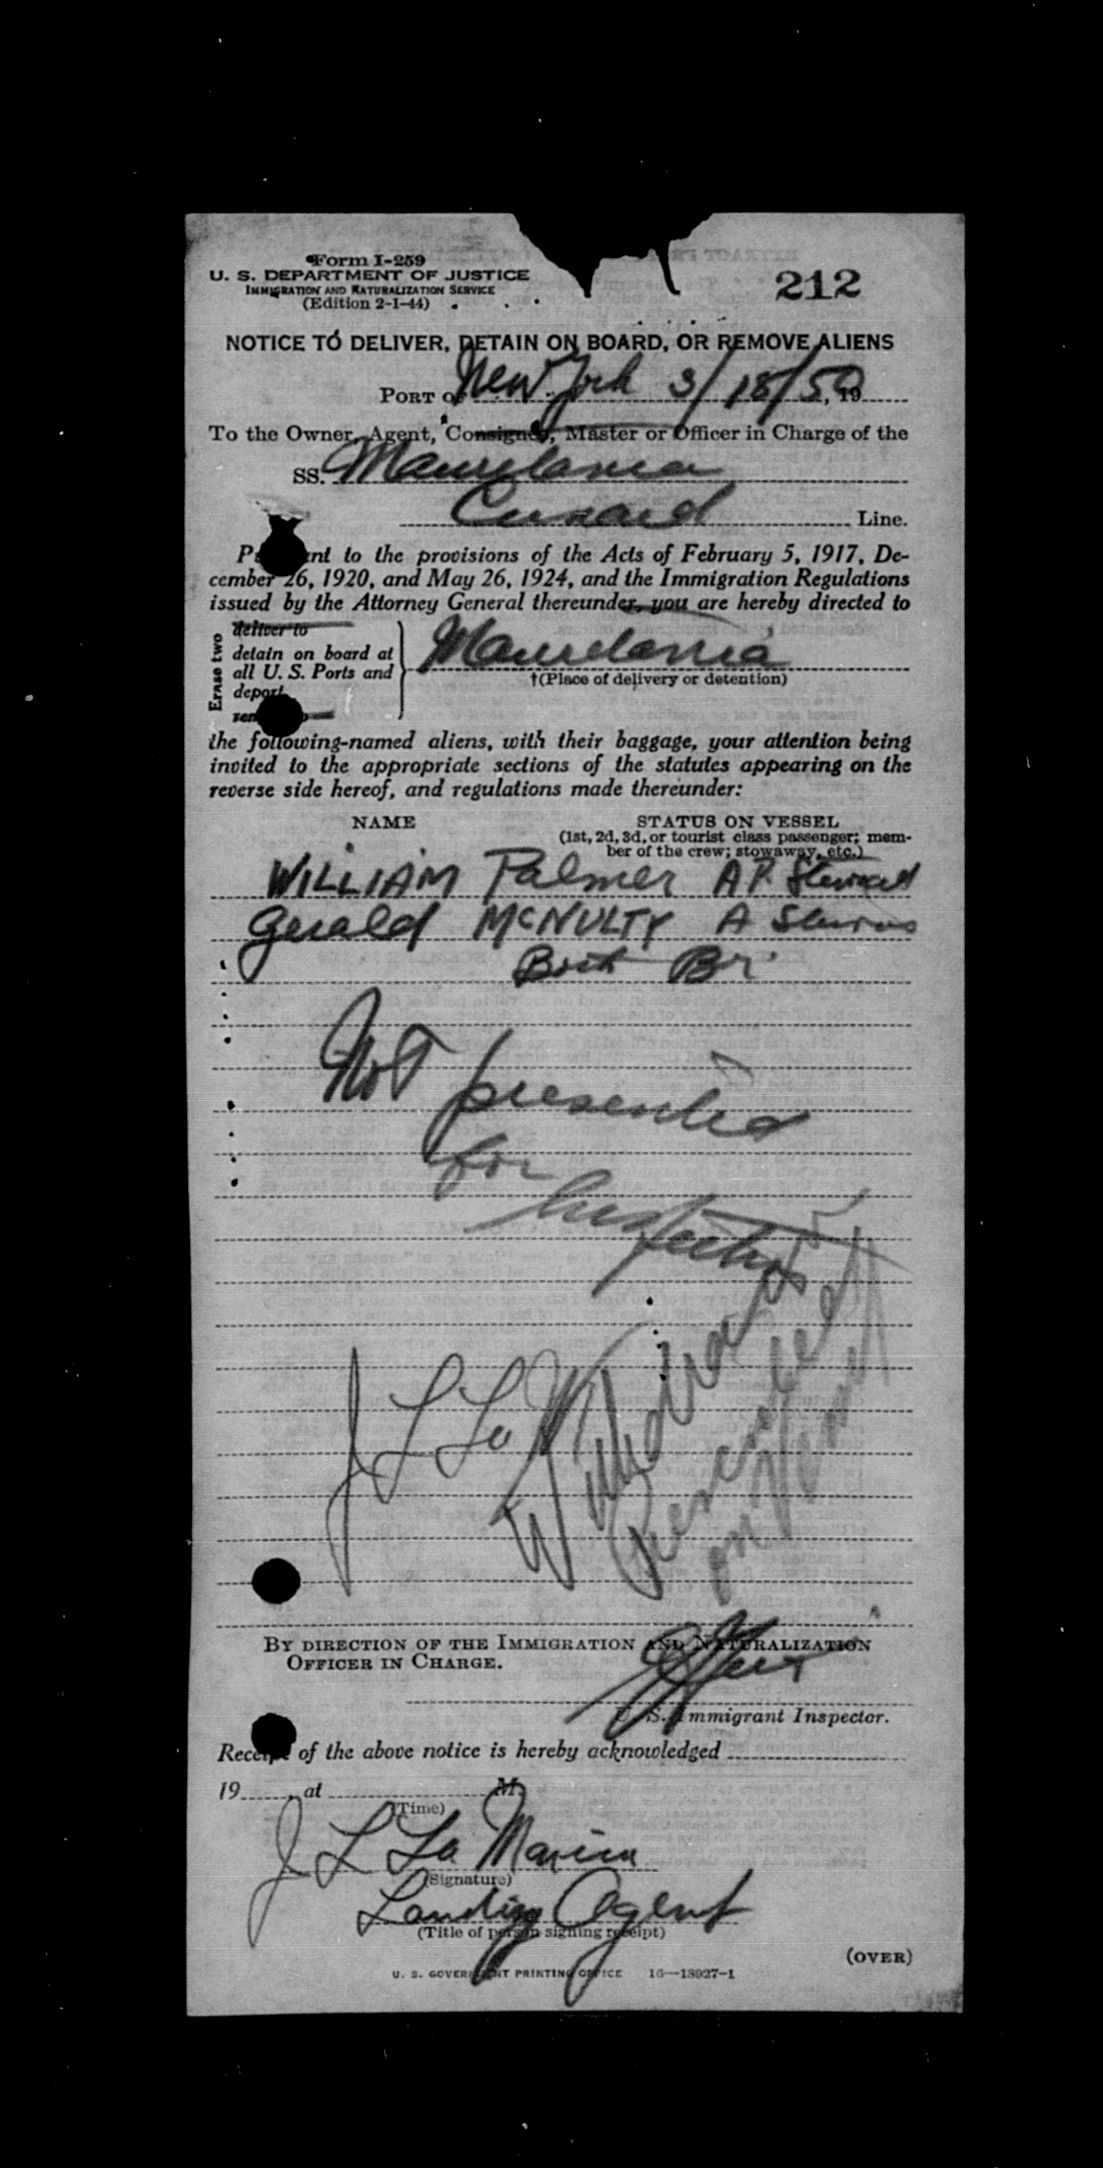 Form I-259
U. S. DEPARTMENT OF JUSTICE
IMMIGRATION AND NATURALIZATION SERVICE
(Edition 2-1-44)
212
NOTICE TO DELIVER, DETAIN ON BOARD, OR REMOVE ALIENS
PORT OF New York 3/18/50, 19
To the Owner, Agent, Consignee, Master or Officer in Charge of the
SS. Mauretania
Cunard Line.
Pursuant to the provisions of the Acts of February 5, 1917, De-
cember 26, 1920, and May 26, 1924, and the Immigration Regulations
issued by the Attorney General thereunder, you are hereby directed to
Erase two
deliver to
detain on board at
all U. S. Ports and
deport
Mauretania
†(Place of delivery or detention)
the following-named aliens, with their baggage, your attention being
invited to the appropriate sections of the statutes appearing on the
reverse side hereof, and regulations made thereunder:
NAME STATUS ON VESSEL
(1st, 2d, 3d, or tourist class passenger; mem-
ber of the crew; stowaway, etc.)
WILLIAM Palmer Steward
Gerald MCNULTY A
Both Br.
Not presented
for
Inspection
Withdrawn
Presence
on
J L La
BY DIRECTION OF THE IMMIGRATION AND NATURALIZATION
OFFICER IN CHARGE.
U. S. Immigrant Inspector.
Receipt of the above notice is hereby acknowledged
19 , at M.
(Time)
J L La
(Signature)
Landing Agent
(Title of person signing receipt)
(OVER)
U. S. GOVERNMENT PRINTING OFFICE 16—18927-1